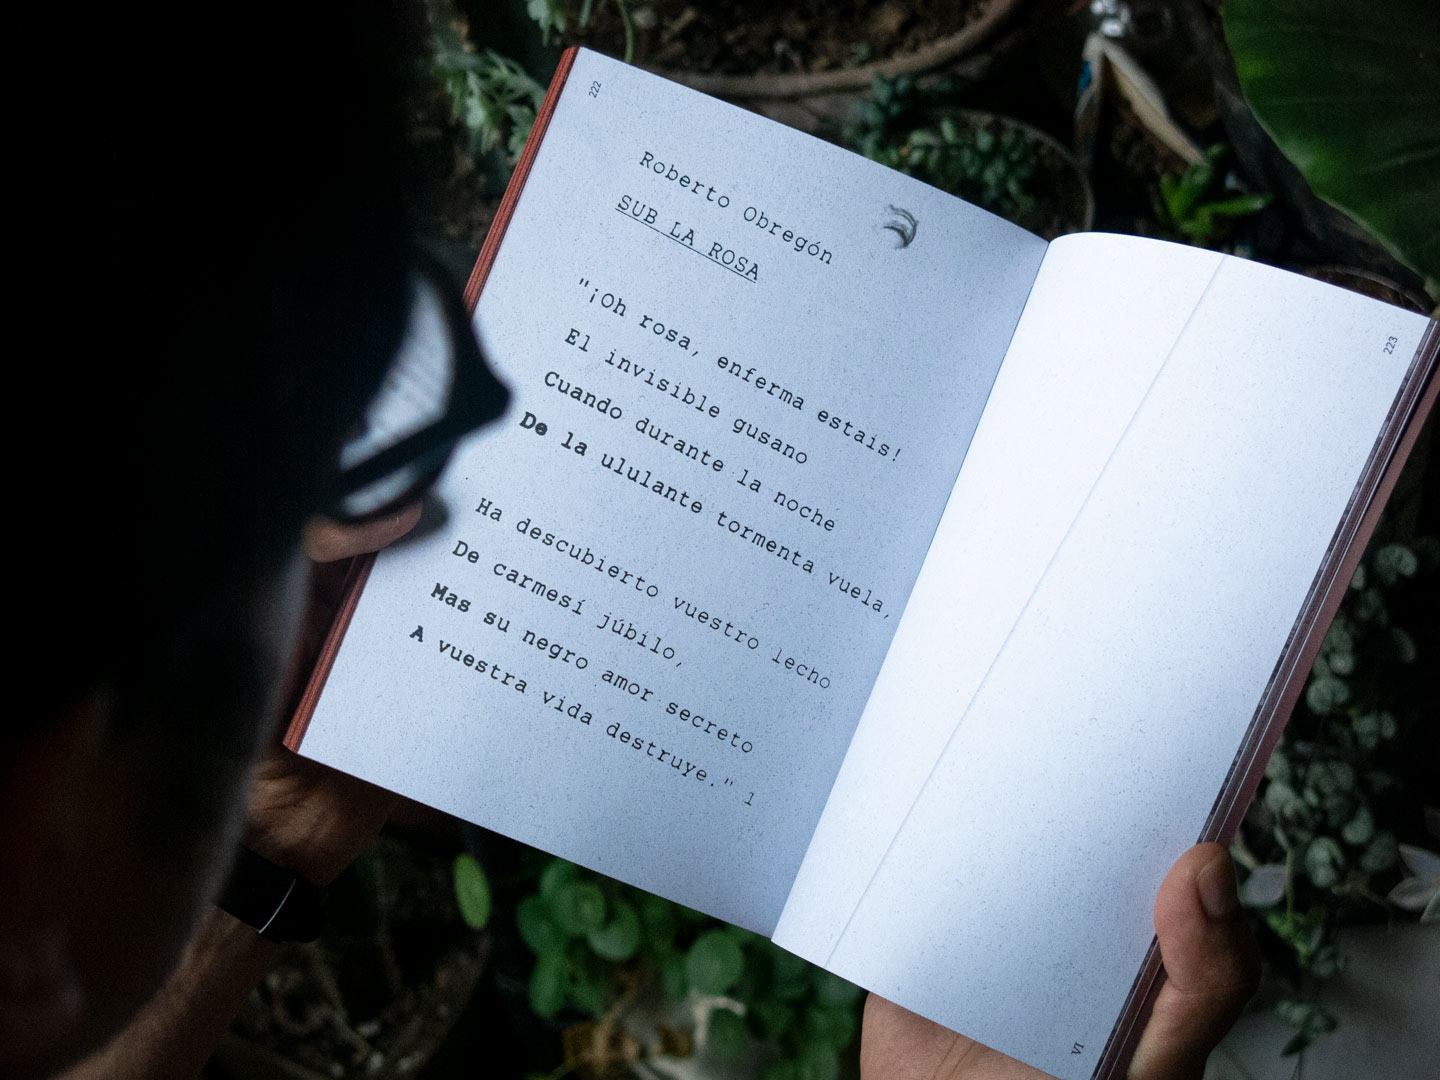 222
Roberto Obregón
SUB LA ROSA
"¡Oh rosa, enferma estais!
El invisible gusano
Cuando durante la noche
De la ululante tormenta vuela,
Ha descubierto vuestro lecho
De carmesí júbilo,
Mas su negro amor secreto
A vuestra vida destruye." 1
223
VI